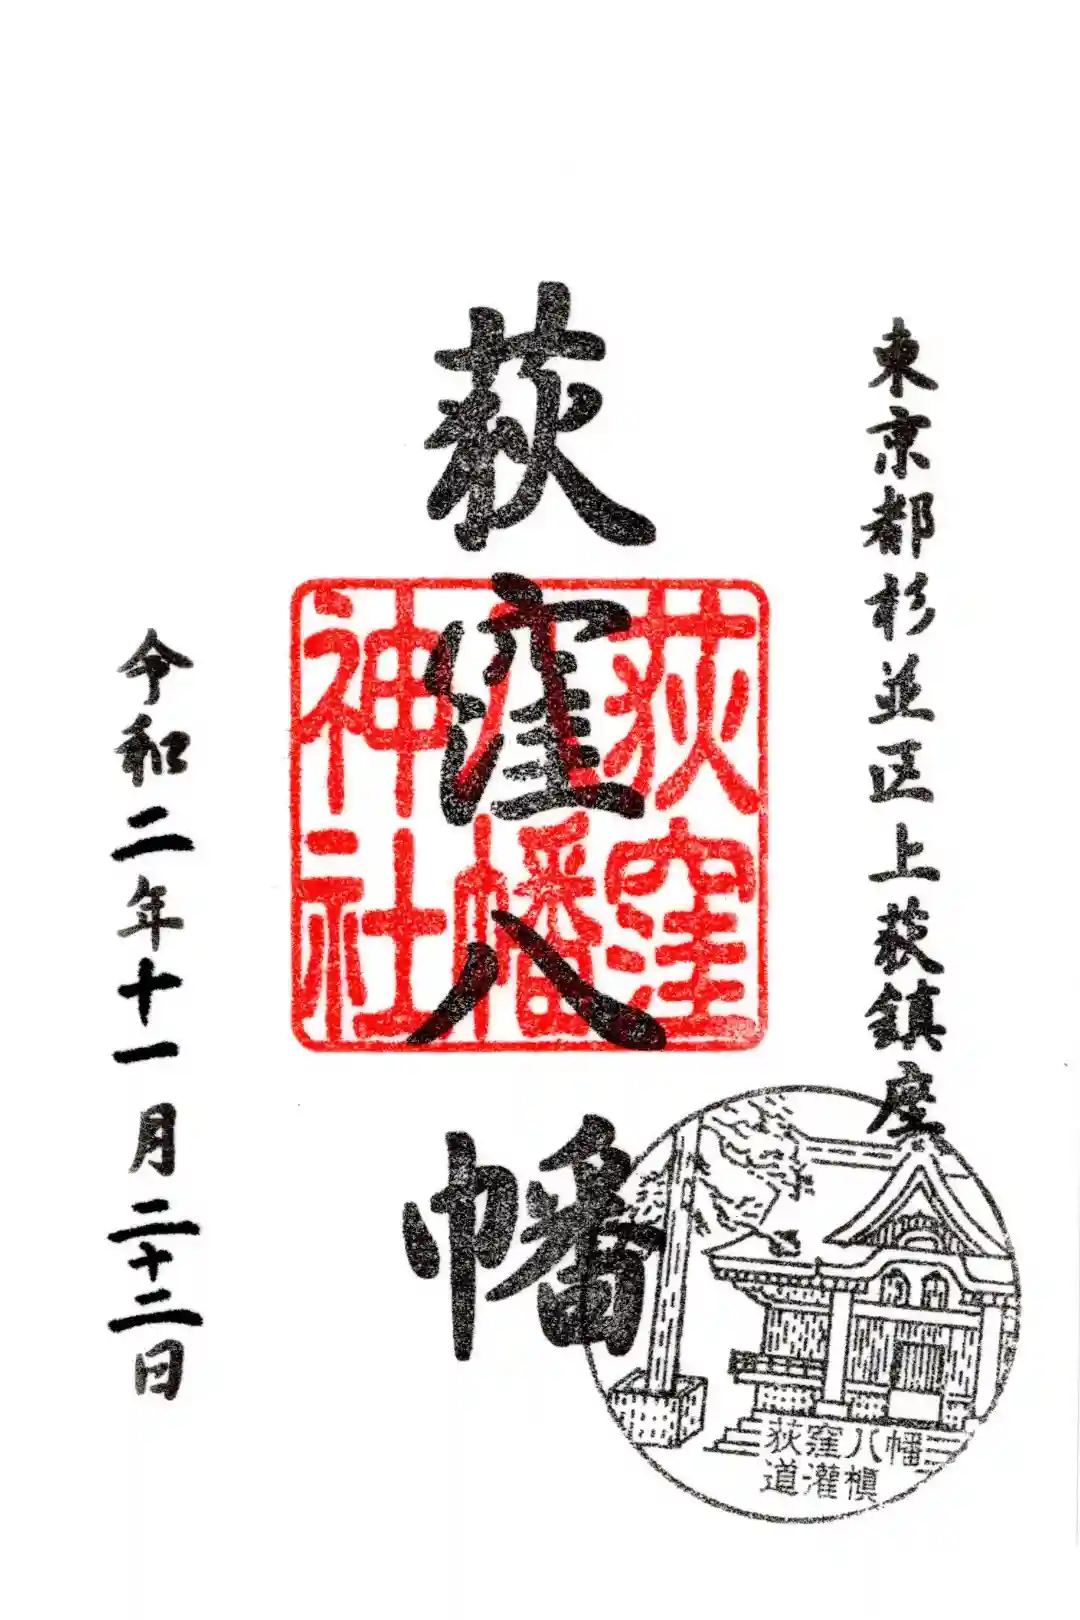 東京都杉並区上荻鎮座
荻窪八幡
荻窪
八幡
神社
令和二年十一月二十二日
荻窪八幡
道灌槙